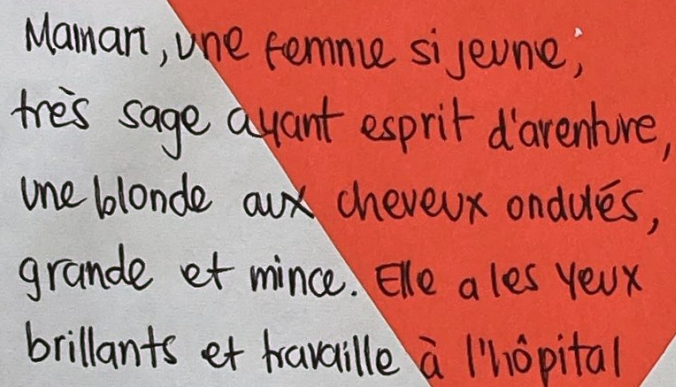 Maman, une femme si jeune,
très sage ayant esprit d'aventure,
une blonde aux cheveux ondulés,
grande et mince. Elle a les yeux
brillants et travaille à l'hôpital